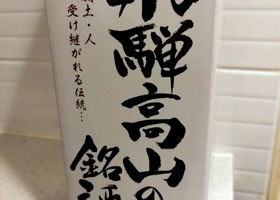 飛騨高山の
銘酒
土・人
受け継がれる伝統…